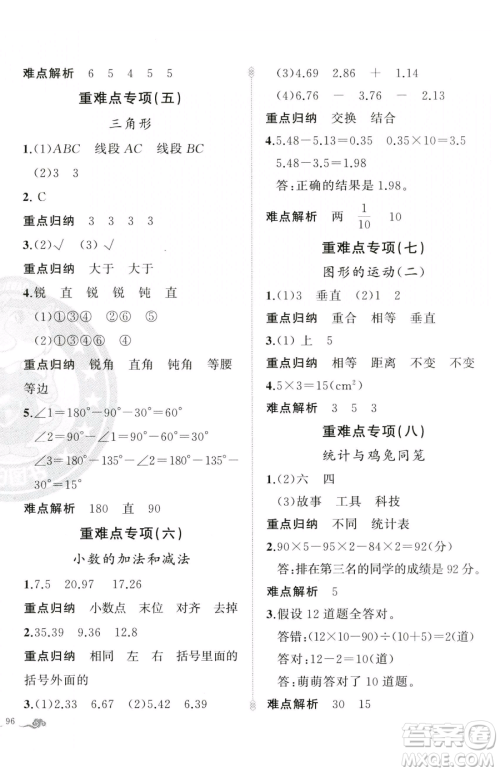 难点解析 6 5 4 5 5
重难点专项(五)
三角形
1.(1)ABC 线段 AC 线段 BC
(2)3 3
2. C
重点归纳 3 3 3
3.(2)√ (3)√
重点归纳 大于 大于
4.锐 直 锐 锐 钝 直
(1)①③④ ②⑥ ⑤
(2)①③ ④
重点归纳 锐角 直角 钝角 等腰
等边
5.∠1=180°-90°-50°=40°
∠2=180°-90°-40°=50°
∠3=180°-30°-60°=90°
∠4=180°-90°-90°=0°
难点解析 180 直 90
重难点专项(六)
小数的加法和减法
1.7.5 20.97 17.26
重点归纳 小数点 末位 对齐 去掉
2.35.39 9.36 13.44
重点归纳 相同 左 右 括号里面的
括号外面的
3.(1)5.42 6.63 (2)5.42 6.39
96
(3)4.69 2.86 + 1.14
(4)6.76 - 3.76 - 2.76
重点归纳 交换 结合
4.5.48-5.13=0.35 0.35×10=3.5
5.48-3.5=1.98
答:正确的结果是 1.98。
难点解析 两 1/10 10
重难点专项(七)
图形的运动(二)
1.(1)3 垂直 (2)1 垂直
重点归纳 重合 相等 垂直
3.(1)上 5
重点归纳 相等 距离 不变 不变
4.5×3=15(cm²)
难点解析 3 5 3
重难点专项(八)
统计与鸡兔同笼
1.(2)六 四
(3)故事 工具 科技
重点归纳 不同 统计表
2.90×5-95×2-84×2=92(分)
答:排在第三名的同学的成绩是 92 分。
难点解析 5
3.假设 12 道题全答对。
答错:(12×10-90)÷(10+5)=2(道)
答对:12-2=10(道)
答:萌萌答对了 10 道。
难点解析 30 15
答案圈
MXQE.COM